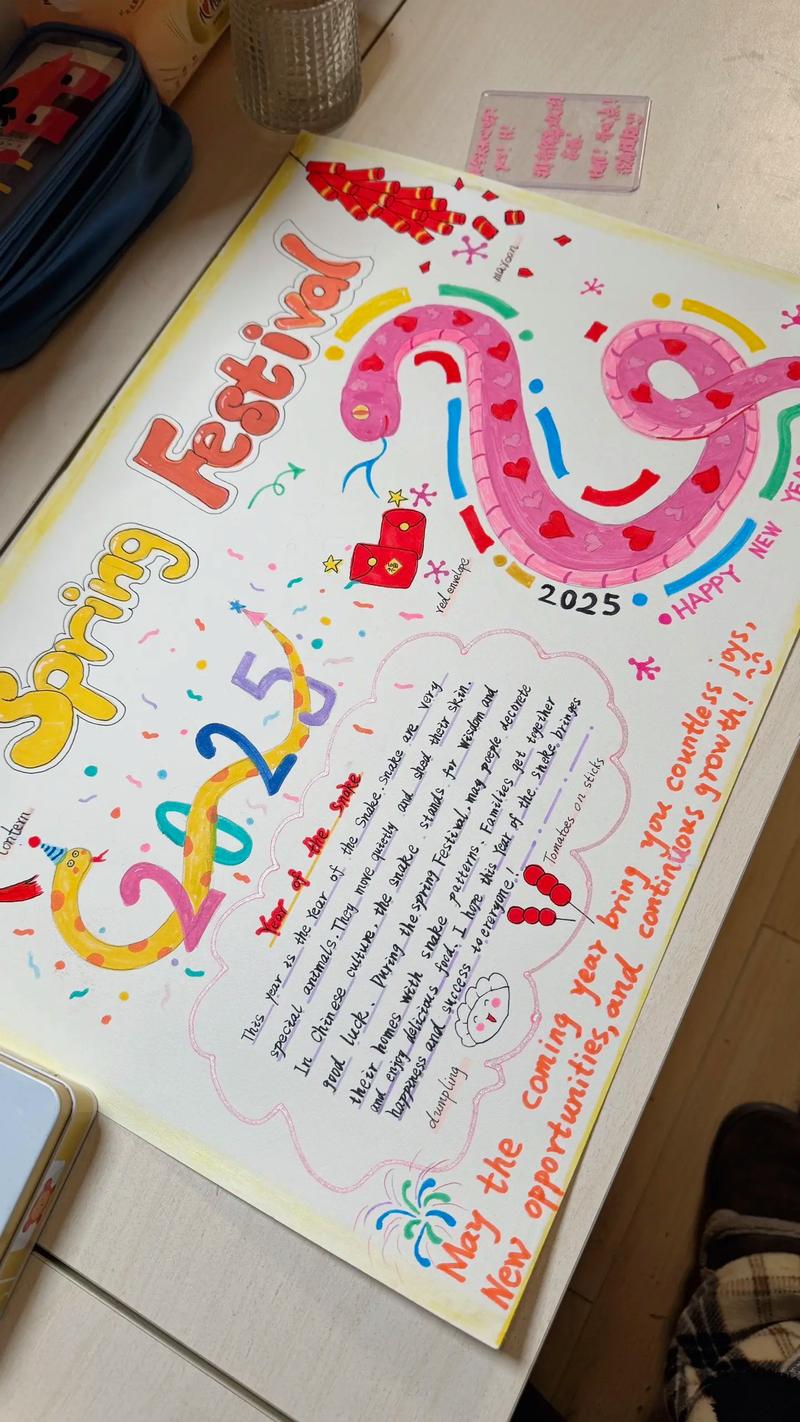 Spring Festival
maroon
red envelope
2025
2025
HAPPY NEW YEAR
lantern
Year of the Snake
This year is the Year of the Snake. Snake are very
special animals. They move quietly and shed their skin.
In Chinese culture, the snake stands for wisdom and
good luck. During the spring Festival. may people decorate
their homes with snake patterns. Families get together
and enjoy delicious food. I hope this Year of the snake bringes
happiness and success to everyone!
Tomatoes on sticks
dumpling
福
May the coming year bring you countless joys,
New opportunities, and continuous growth!